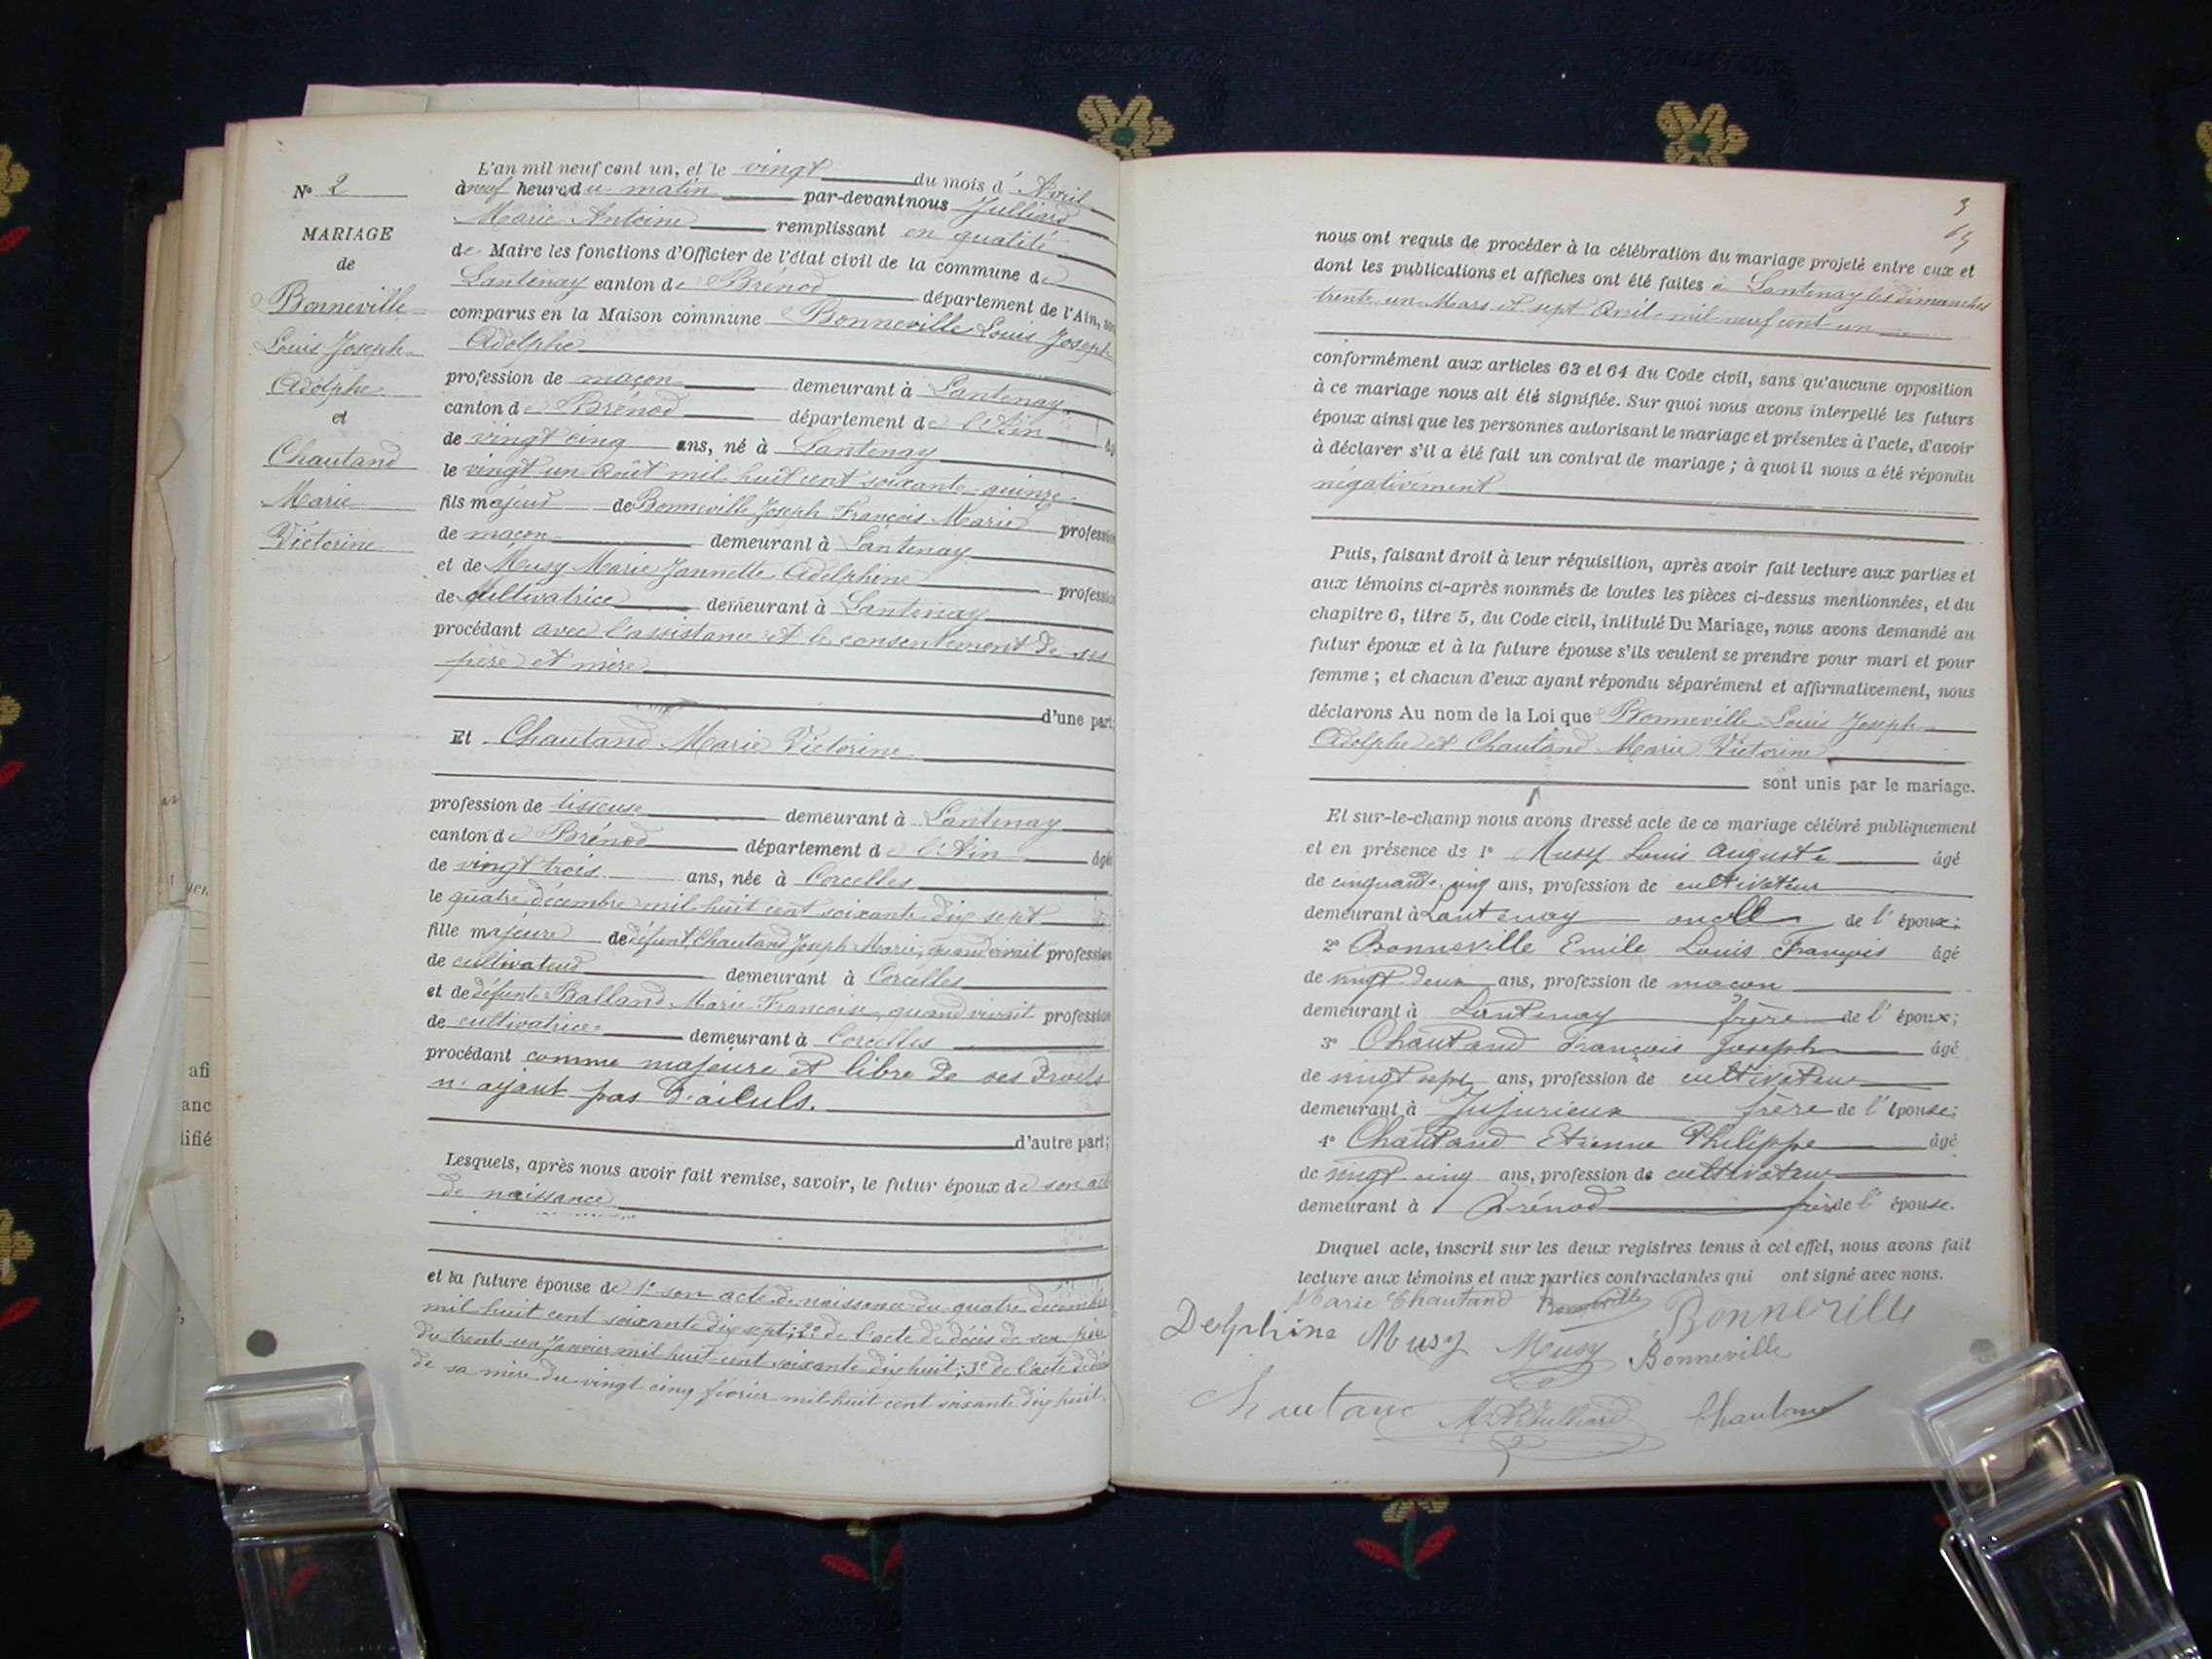 N° 2
MARIAGE
de
Bonneville
Louis Joseph
Adolphe
et
Chautand
Marie
Victorine
L'an mil neuf cent un, et le vingt du mois d' Avril
à neuf heures du matin par-devant nous Julliard
Marie Antoine remplissant en qualité
de Maire les fonctions d'Officier de l'état civil de la commune de
Lantenay canton de Brénod département de l'Ain, sont
comparus en la Maison commune Bonneville Louis Joseph
Adolphe
profession de maçon demeurant à Lantenay
canton de Brénod département de l'Ain âgé
de vingt cinq ans, né à Lantenay
le vingt un Août mil huit cent soixante quinze
fils majeur de Bonneville Joseph François Marie profession
de maçon demeurant à Lantenay
et de Musy Marie Jannette Adelphine profession
de cultivatrice demeurant à Lantenay
procédant avec l'assistance et le consentement de ses
père et mère
d'une part;
Et Chautand Marie Victorine
profession de tisseuse demeurant à Lantenay
canton de Brénod département de l'Ain âgée
de vingt trois ans, née à Corcelles
le quatre décembre mil huit cent soixante dix sept
fille majeure de défunt Chautand Joseph Marie, quand vivait profession
de cultivateur demeurant à Corcelles
et de défunte Balland Marie Françoise, quand vivait profession
de cultivatrice demeurant à Corcelles
procédant comme majeure et libre de ses droits
n'ayant pas d'aïeuls.
d'autre part;
Lesquels, après nous avoir fait remise, savoir, le futur époux de son acte
de naissance
et la future épouse de 1° son acte de naissance du quatre décembre
mil huit cent soixante dix sept; 2° de l'acte de décès de son père
du trente un Janvier mil huit cent soixante dix huit; 3° de l'acte de décès
de sa mère du vingt cinq février mil huit cent soixante dix huit.
afi
anc
lifié
3
nous ont requis de procéder à la célébration du mariage projeté entre eux et
dont les publications et affiches ont été faites à Lantenay les dimanches
trente un Mars et sept Avril mil neuf cent un
conformément aux articles 63 et 64 du Code civil, sans qu'aucune opposition
à ce mariage nous ait été signifiée. Sur quoi nous avons interpellé les futurs
époux ainsi que les personnes autorisant le mariage et présentes à l'acte, d'avoir
à déclarer s'il a été fait un contrat de mariage ; à quoi il nous a été répondu
négativement
Puis, faisant droit à leur réquisition, après avoir fait lecture aux parties et
aux témoins ci-après nommés de toutes les pièces ci-dessus mentionnées, et du
chapitre 6, titre 5, du Code civil, intitulé Du Mariage, nous avons demandé au
futur époux et à la future épouse s'ils veulent se prendre pour mari et pour
femme ; et chacun d'eux ayant répondu séparément et affirmativement, nous
déclarons Au nom de la Loi que Bonneville Louis Joseph
Adolphe et Chautand Marie Victorine
sont unis par le mariage.
Et sur-le-champ nous avons dressé acte de ce mariage célébré publiquement
et en présence de 1° Musy Louis Auguste âgé
de cinquante cinq ans, profession de cultivateur
demeurant à Lantenay oncle de l' époux;
2° Bonneville Emile Louis François âgé
de vingt deux ans, profession de maçon
demeurant à Lantenay frère de l' époux;
3° Chautand François Joseph âgé
de vingt sept ans, profession de cultivateur
demeurant à Jujurieux frère de l' épouse;
4° Chautand Etienne Philippe âgé
de vingt cinq ans, profession de cultivateur
demeurant à Brénod frère de l' épouse.
Duquel acte, inscrit sur les deux registres tenus à cet effet, nous avons fait
lecture aux témoins et aux parties contractantes qui ont signé avec nous.
Marie Chautand Bonneville Bonneville
Delphine Musy Musy Bonneville
Chautand M A Julliard Chautand